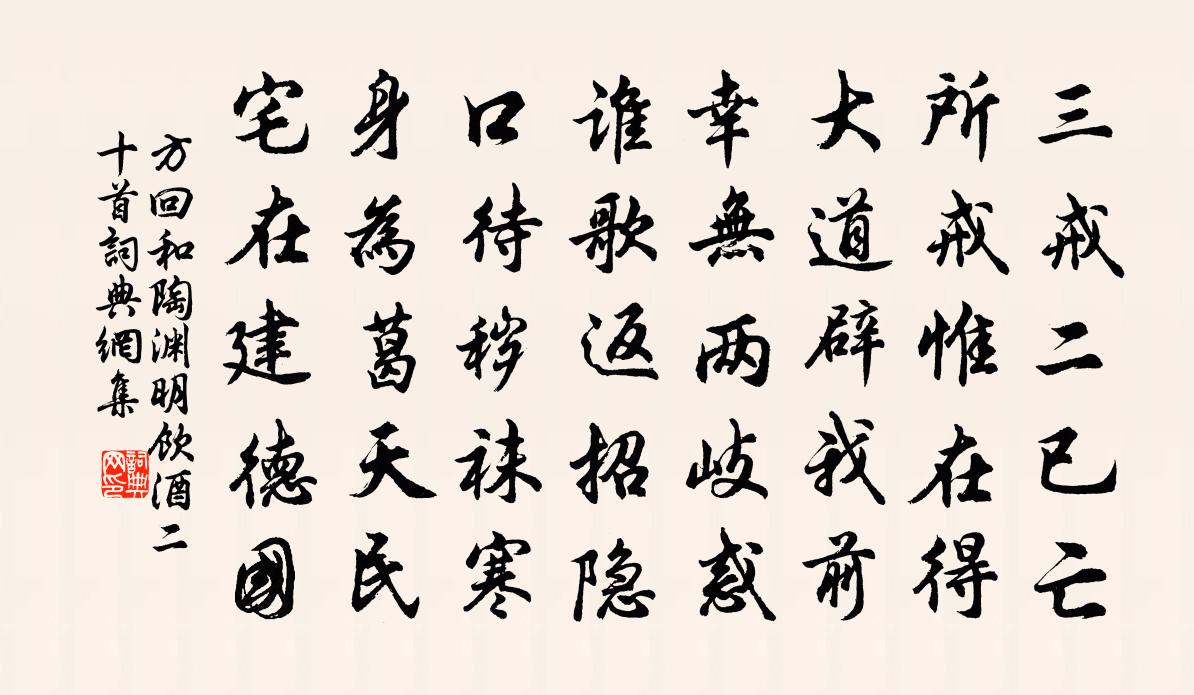 三戒二已亡
所戒惟在得
大道辟我前
幸無两岐惑
谁歌返招隐
口待穆袜寒
身為葛天民
宅在建德國
方回和陶渊明飲酒二
十首詞典網集
詞典网印